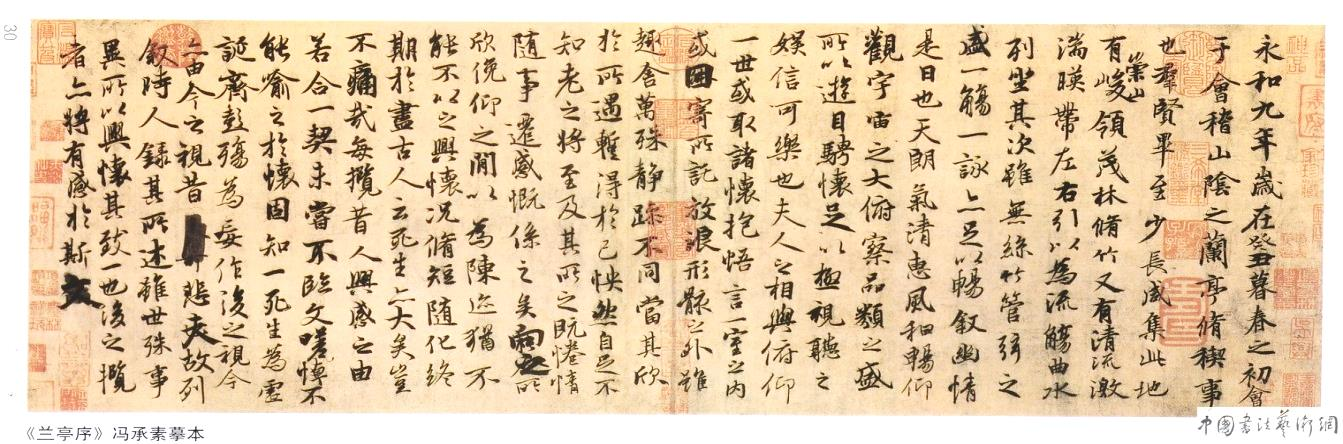 永和九年歲在癸丑暮春之初會
于會稽山陰之蘭亭脩稧事
也羣賢畢至少長咸集此地
有崇山峻領茂林脩竹又有清流激
湍暎帶左右引以為流觴曲水
列坐其次雖無絲竹管弦之
盛一觴一詠亦足以暢敘幽情
是日也天朗氣清惠風和暢仰
觀宇宙之大俯察品類之盛
所以遊目騁懷足以極視聽之
娛信可樂也夫人之相與俯仰
一世或取諸懷抱悟言一室之內
或因寄所託放浪形骸之外雖
趣舍萬殊靜躁不同當其欣
於所遇蹔得於己怏然自足不
知老之將至及其所之既惓情
隨事遷感慨係之矣向之所
欣俛仰之閒以為陳迹猶不
能不以之興懷況脩短隨化終
期於盡古人云死生亦大矣豈
不痛哉每攬昔人興感之由
若合一契未嘗不臨文嗟悼不
能喻之於懷固知一死生為虛
誕齊彭殤為妄作後之視今
亦由今之視昔悲夫故列
敘時人錄其所述雖世殊事
異所以興懷其致一也後之攬
者亦將有感於斯文
神品
30
《兰亭序》冯承素摹本
中國書法藝術網